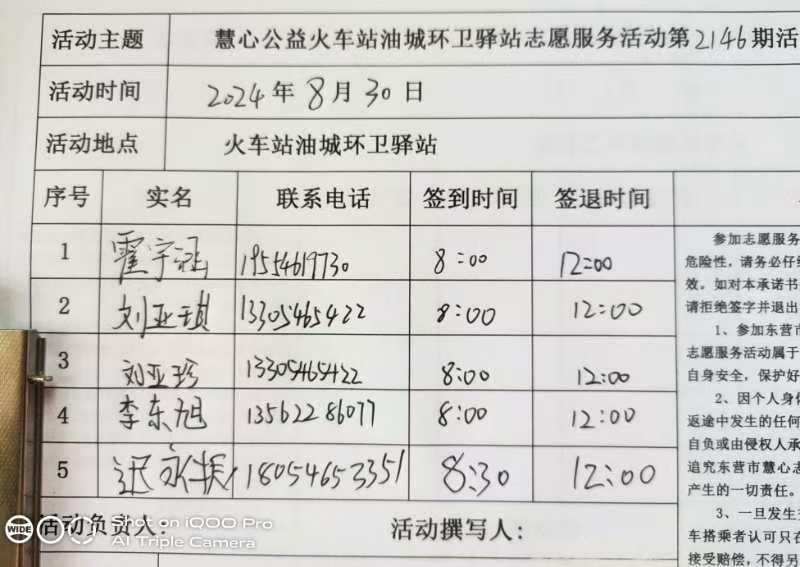 活动主题 慧心公益火车站油城环卫驿站志愿服务活动第2146期活
活动时间 2024年8月30日
活动地点 火车站油城环卫驿站
序号 实名 联系电话 签到时间 签退时间
1 霍宇涵 19554619730 8:00 12:00
2 刘亚琪 13305465422 8:00 12:00
3 刘亚珍 13305465422 8:00 12:00
4 李东旭 13562286077 8:00 12:00
5 迟永振 18054653351 8:30 12:00
参加志愿服务
危险性，请务必仔细
效。如对本承诺书
请拒绝签字并退出
1、参加东营市
志愿服务活动属于
自身安全，保护好
2、因个人身体
返途中发生的任何
自负或由侵权人承
追究东营市慧心志
产生的一切责任。
3、一旦发生
车搭乘者认可只在
接受赔偿，不得另
活动负责人： 活动撰写人：
WIDE
Shot on iQOO Pro
AI Triple Camera